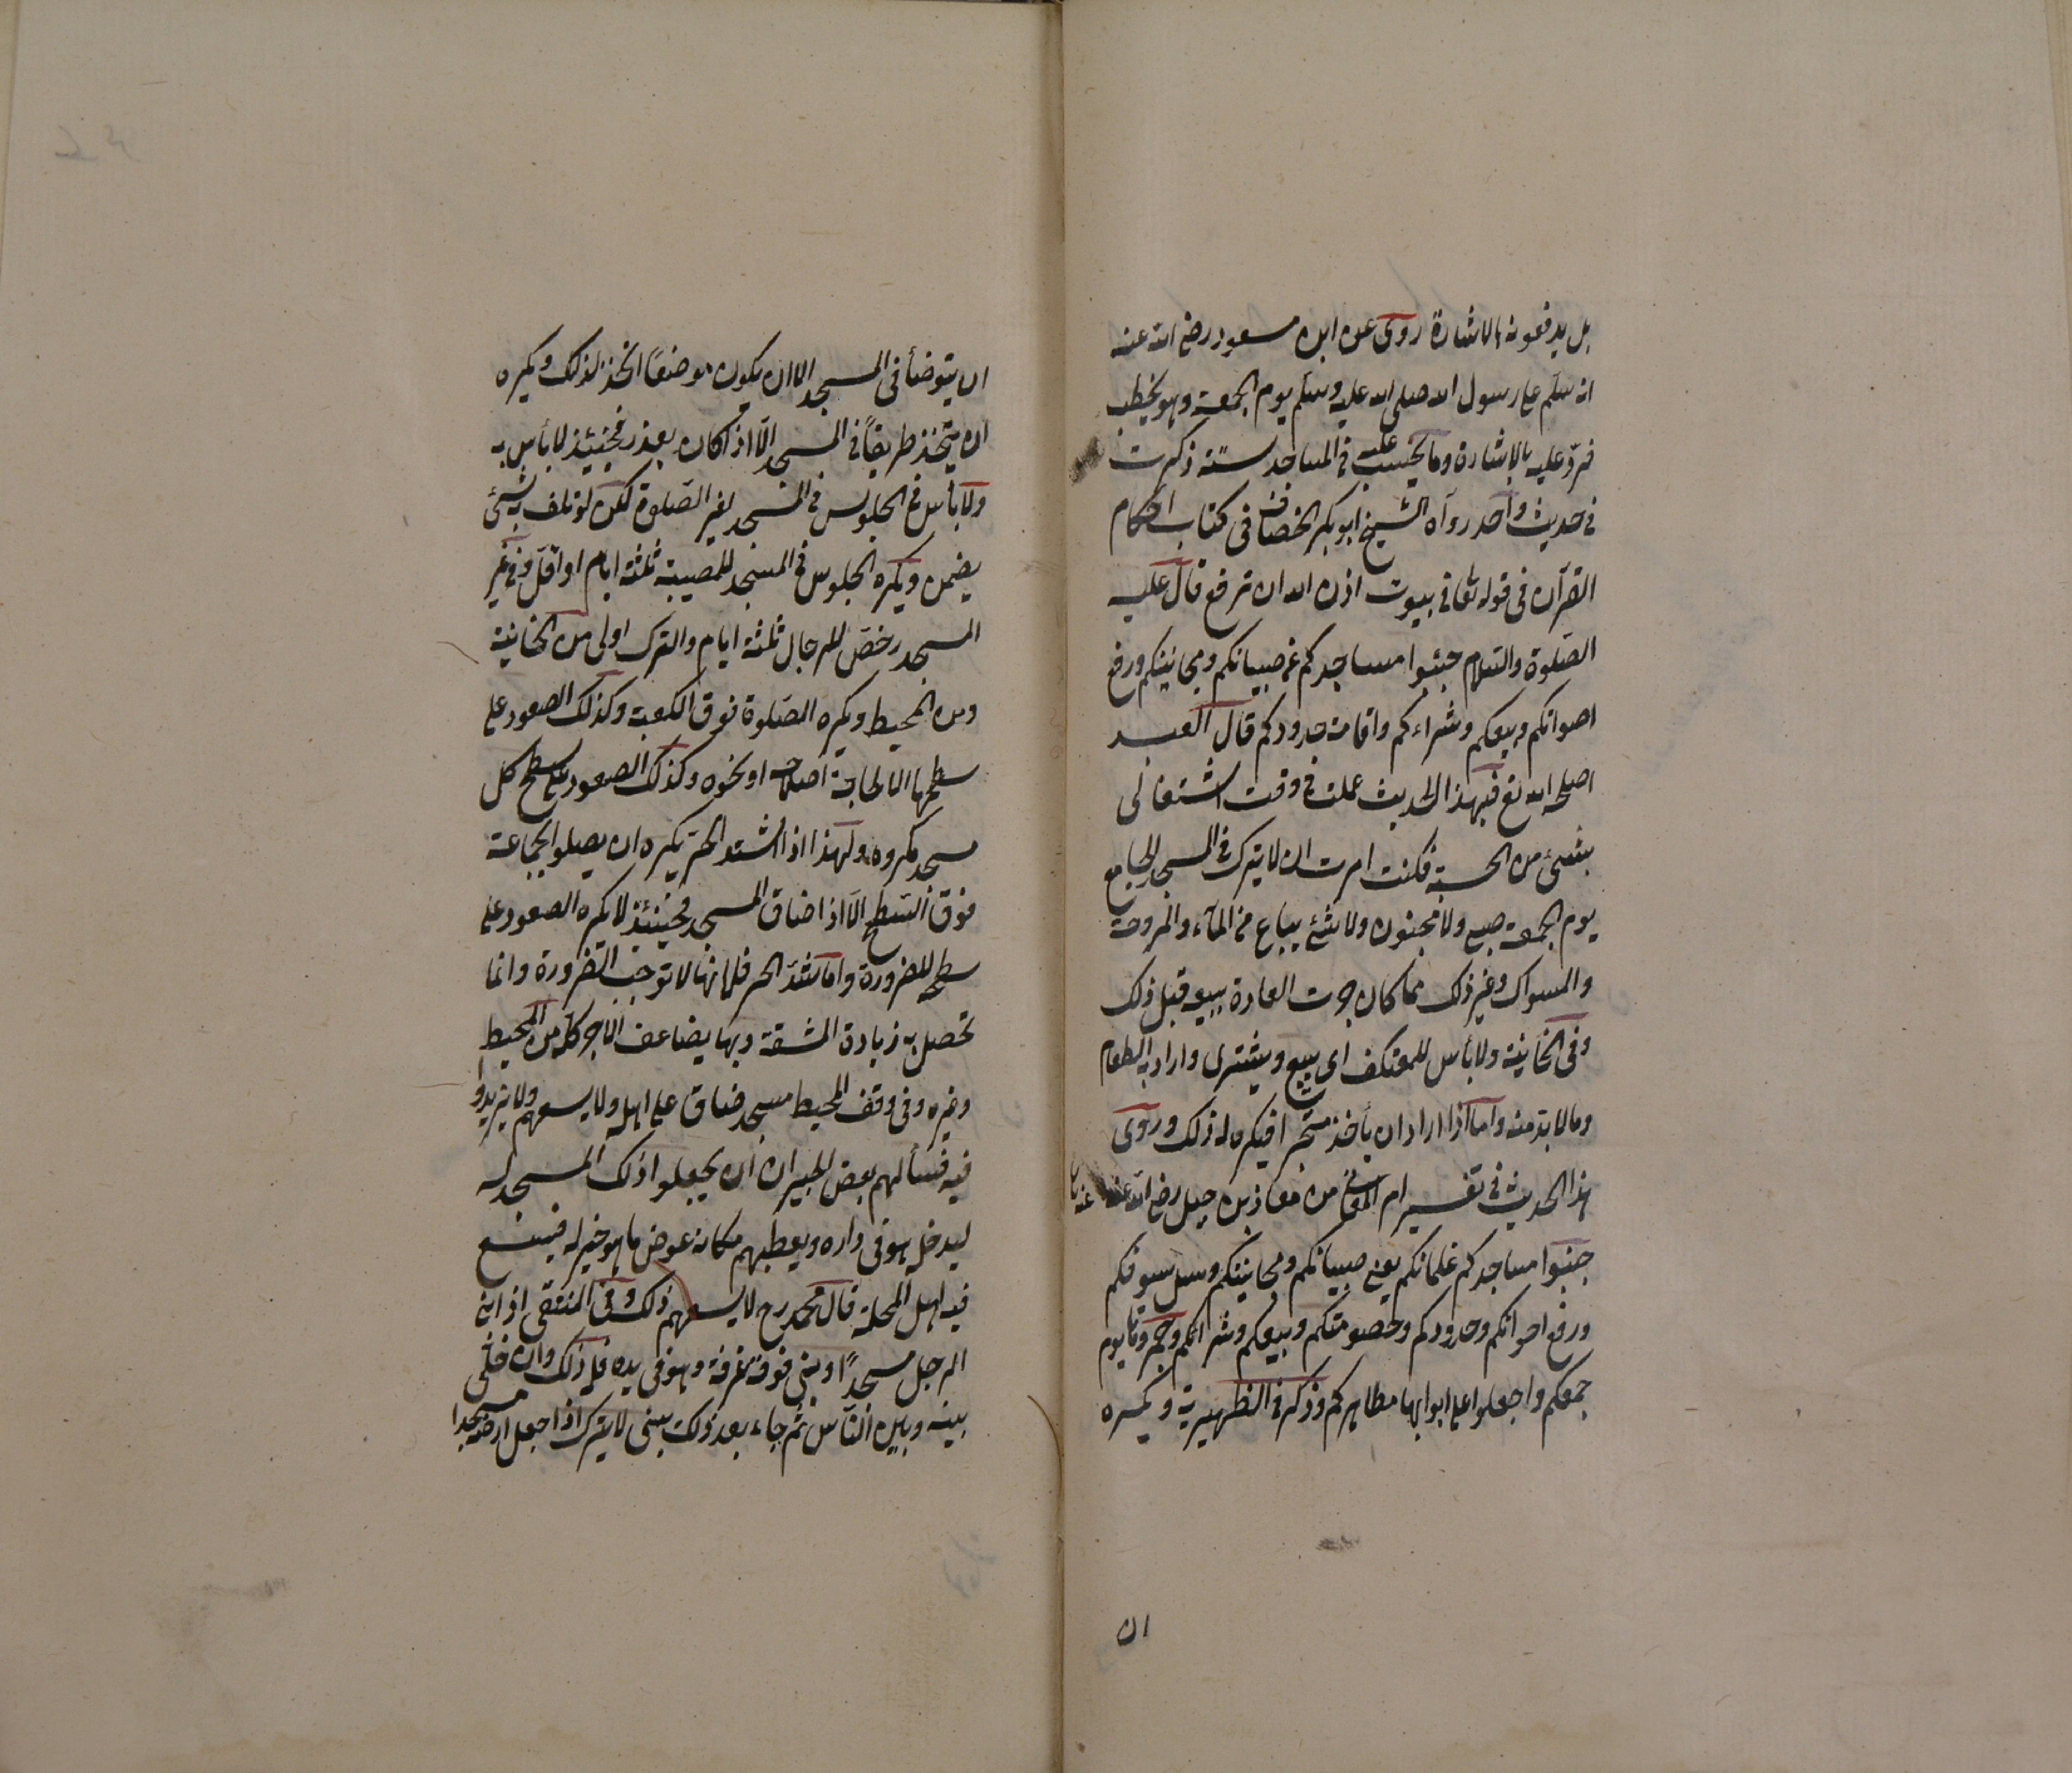 بل يدفعونه بالاشارة روى عن ابن مسعود رضى الله عنه
انه سلم على رسول الله صلى الله عليه وسلم يوم الجمعة وهو يخطب
فردّ عليه بالاشارة وما يحتسب عليه فى المساجد ستة ذكرت
فى حديث واحد رواه الشيخ ابو بكر الخصاف فى كتاب احكام
القرآن فى قوله تعا فى بيوت اذن الله ان ترفع قال عليه
الصلوة والسلام جنبوا مساجدكم عن صبيانكم ومجانينكم ورفع
اصواتكم وبيعكم وشراءكم واقامة حدودكم قال العبد
اصلحه الله تع فبهذا الحديث عملت فى وقت اشتغالى
بشئ من الحسبة فكنت امرت ان لا يترك فى المسجد الجامع
يوم الجمعة صبى ولا مجنون ولا شئ يباع من الماء والمروحة
والمسواك وغير ذلك مما كان جرت العادة ببيعه قبل ذلك
وفى الخانية ولا بأس للمعتكف ان يبيع ويشترى واراد به الطعام
وما لا بد منه واما اذا اراد ان يأخذ متجرا فيكره له ذلك وروى
هذا الحديث فى تفسير ام المعانى من معاذ بن جبل رضى الله عنه
جنبوا مساجدكم غلمانكم يعنى صبيانكم ومجانينكم وسل سيوفكم
ورفع اصواتكم وحدودكم وخصومتكم وبيعكم وشرائكم وجمروها يوم
جمعكم واجعلوا على ابوابها مطاهركم وذكر فى الظهيرية ويكره
ان
ان يتوضأ فى المسجد الا ان يكون موضعًا اتخذ لذلك ويكره
ان يتخذ طريقاً فى المسجد الّا اذا كان بعذر فحينئذ لا بأس به
ولا بأس فى الجلوس فى المسجد لغير الصلوة لكن لو تلف به شئ
يضمن ويكره الجلوس فى المسجد للمصيبة ثلثة ايام او اقل وفى غير
المسجد رخص للرجال ثلثة ايام والترك اولى من الخانية
ومن المحيط ويكره الصلوة فوق الكعبة وكذلك الصعود على
سطحها الا لحاجة اصلاحه او نحوه وكذلك الصعود على سطح كل
مسجد مكروه ولهذا اذا اشتد الحر يكره ان يصلوا لجماعة
فوق السطح الّا اذا ضاق المسجد فحينئذ لا يكره الصعود على
سطحه للضرورة واما شدّ الحر فلانها لا توجب الضرورة وانما
تحصل به زيادة المشقة وبها يضاعف الاجر كله من المحيط
وغيره وفى وقف المحيط مسجد ضاق على اهله ولا يسعهم ولا يزيدوا
فيه فسألهم بعض الجيران ان يجعلوا ذلك المسجد له
ليدخل هو فى داره ويعطيهم مكانه عوض ما هو خير له فيسع
فيه اهل المحلة قال محمد رح لا يسعهم ذلك وفى المنتقى اذا بنى
الرجل مسجدًا وبنى فوقه غرفة وهو فى يده فله ذلك وان خلى
بينه وبين الناس ثم جاء بعد ذلك يبنى لا يترك اذا جعل ارضه مسجدا